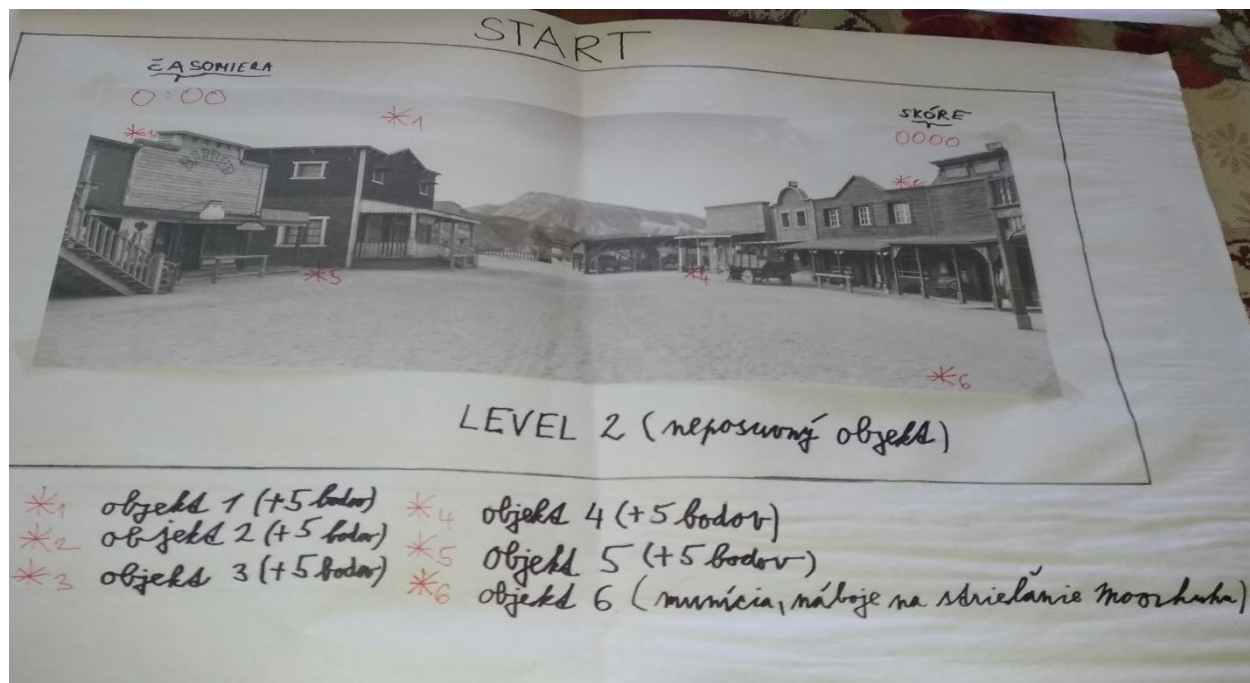 START
ČASOMIERA
0:00
SKÓRE
0000
*1
*5
*4
*6
LEVEL 2 (neposuvný objekt)
*1 objekt 1 (+5 bodov)
*2 objekt 2 (+5 bodov)
*3 objekt 3 (+5 bodov)
*4 objekt 4 (+5 bodov)
*5 objekt 5 (+5 bodov)
*6 objekt 6 (munícia, náboje na strieľanie Moorhuha)